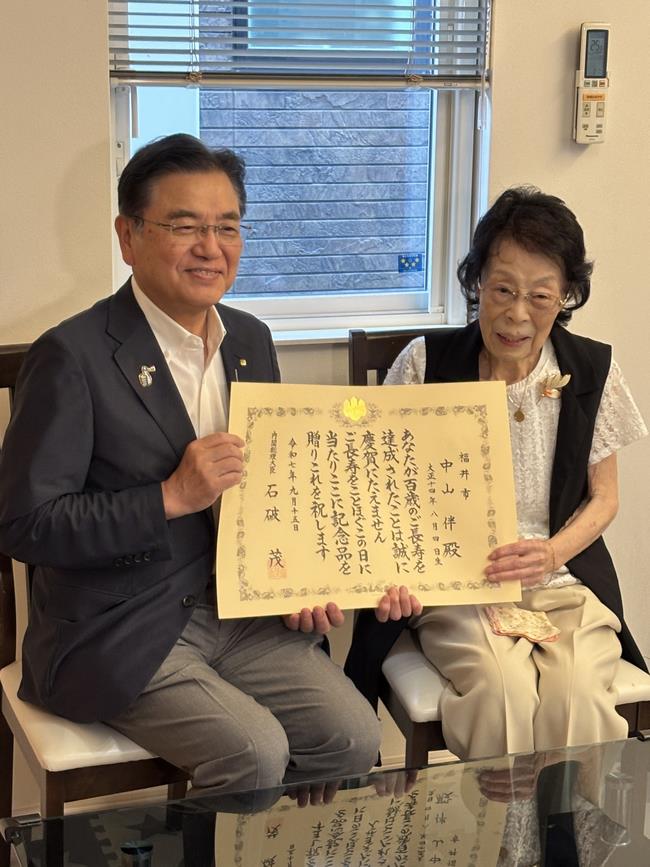 福井市
中山 伴殿
大正十四年八月四日生
あなたが百歳のご長寿を
達成されたことは誠に
慶賀にたえません
ご長寿をことほぐこの日に
当たりここに記念品を
贈りこれを祝します
令和七年九月十五日
内閣総理大臣 石破 茂